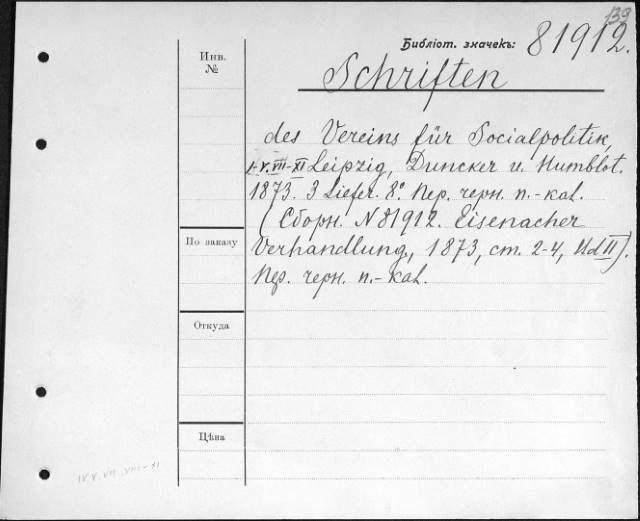 139
Инв.
№
Библiот. значекъ: 81912.
Schriften
des Vereins für Socialpolitik,
I-V.VII-XI Leipzig, Duncker u. Humblot.
1873. 3 Liefer. 8º. Пер. черн. п.-кал.
(Сборн. N 81912. Eisenacher
Verhandlung, 1873, ст. 2-4, II).
Пер. черн. п.-кал.
По заказу
Откуда
Цѣна
IV.V.VII.VIII-XI